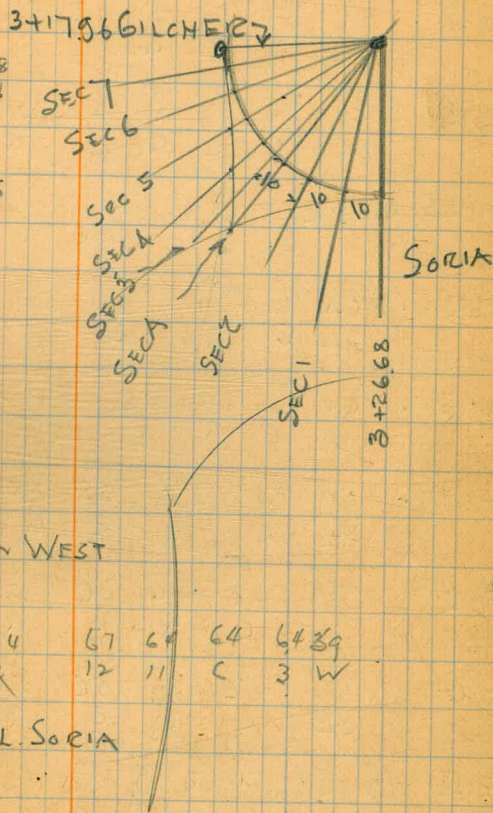 3+17.96 GILCHER
SEC 7
SEC 6
SEC 5
SEC 4
SEC 3
SEC A
SEC 2
SEC 1
10
10
10
SORIA
3+26.68
WEST
67 64 64 64 39
12 11 C 3 W
L. SORIA